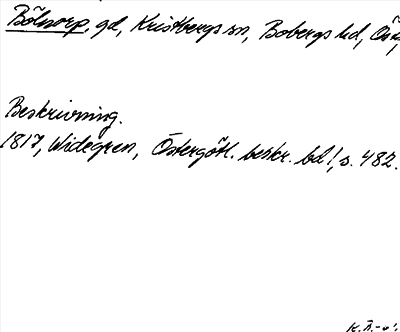 Bölsorp, gd, Kristbergs sn, Bobergs hd, Ös
Beskrivning.
1817, Widegren, Östergötl. beskr. bd 1, s. 482.